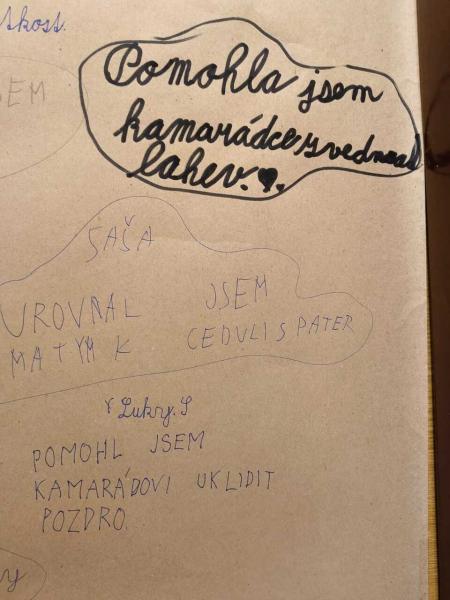 tkost.
SEM
Pomohla jsem
kamarádce zvednout
lahev.
SAŠA
UROVNAL JSEM
MATYM K CEDULI S PATER
Lukry. S
POMOHL JSEM
KAMARÁDOVI UKLIDIT
POZDRO.
y